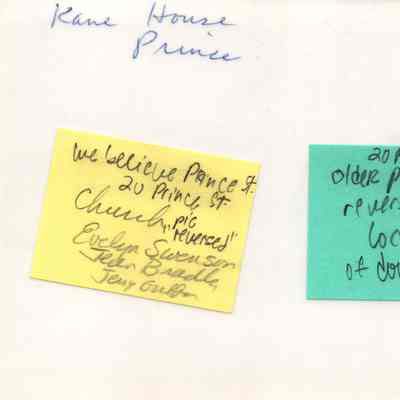 Kane House
Prince
we believe Prince St.
20 Prince St.
Church "pic
reversed"
Evelyn Swenson
Jean Bradle
Jerry
20 P
older p
revers
loc
of do